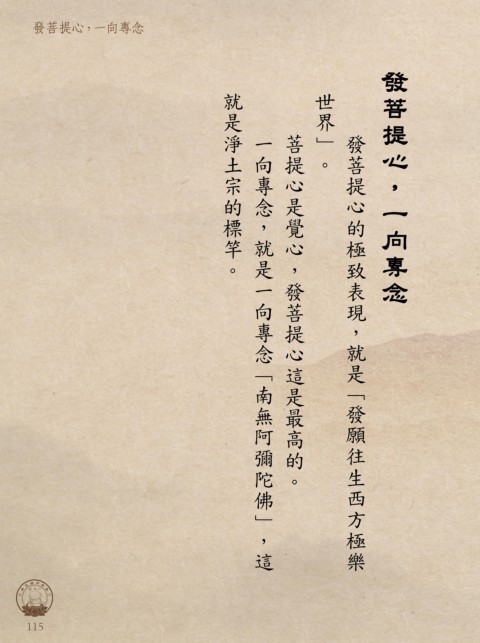 發菩提心，一向專念
發菩提心，一向專念
發菩提心的極致表現，就是「發願往生西方極樂
世界」。
菩提心是覺心，發菩提心這是最高的。
一向專念，就是一向專念「南無阿彌陀佛」，這
就是淨土宗的標竿。
115